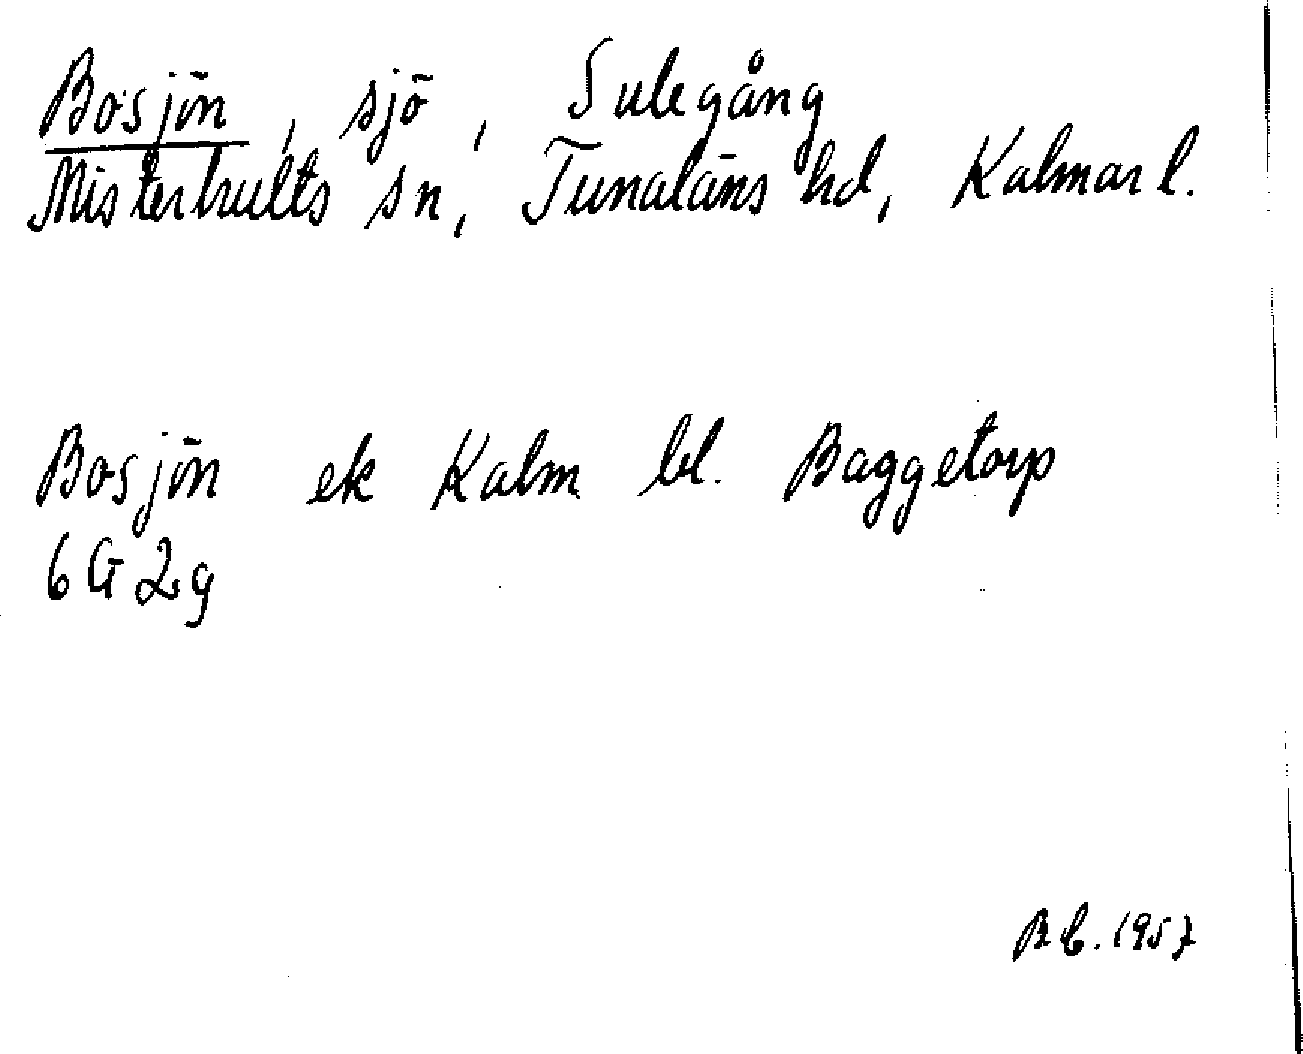 Bosjön, sjö, Sulegång
Misterhults sn, Tunaläns hd, Kalmar l.
Bosjön ek Kalm bl. Baggetorp
6 G 2 g
B b. 1957